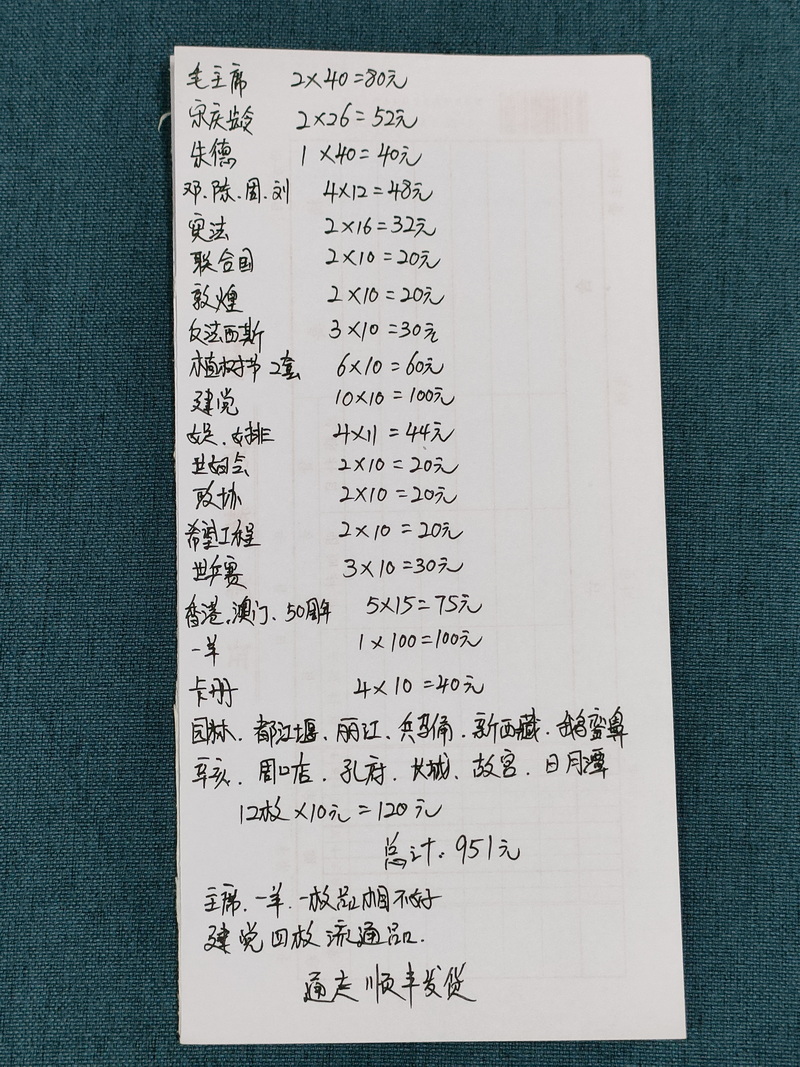 毛主席 2×40=80元
宋庆龄 2×26=52元
朱德 1×40=40元
邓.陈.周.刘 4×12=48元
宪法 2×16=32元
联合国 2×10=20元
敦煌 2×10=20元
反法西斯 3×10=30元
植树节 2套 6×10=60元
建党 10×10=100元
女足.女排 4×11=44元
世妇会 2×10=20元
政协 2×10=20元
希望工程 2×10=20元
世乒赛 3×10=30元
香港.澳门.50周年 5×15=75元
一羊 1×100=100元
卡册 4×10=40元
园林.都江堰.丽江.兵马俑.新西藏.鹅銮鼻
辛亥.周口店.孔府.长城.故宫.日月潭
12枚×10元=120元
总计:951元
主席.一羊.一枚品相不好
建党四枚流通品.
通走顺丰发货